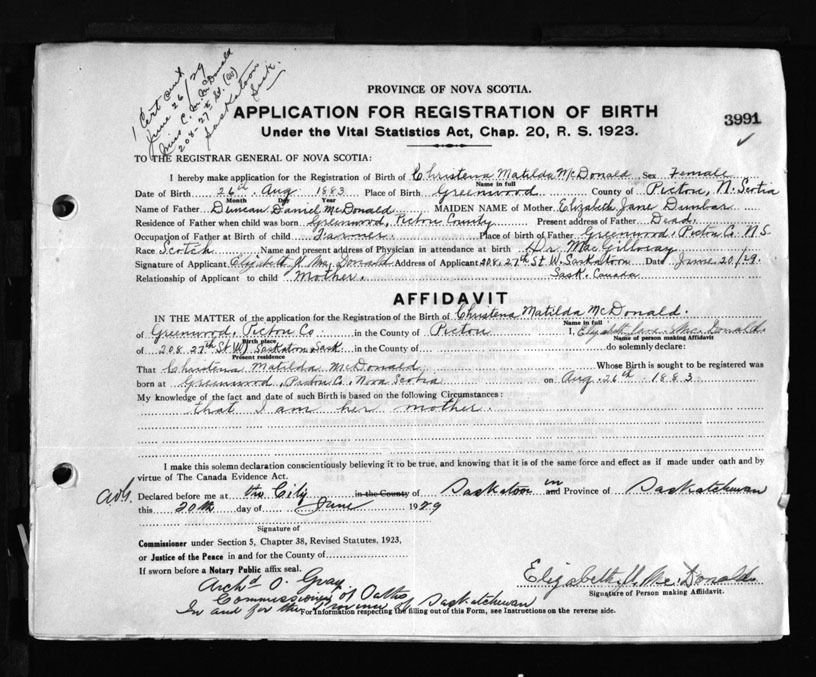 1 Cert sent
June 26/29
Miss C. M. McDonald
208-27th St. (W)
Saskatoon
Sask.
PROVINCE OF NOVA SCOTIA.
APPLICATION FOR REGISTRATION OF BIRTH
3991
Under the Vital Statistics Act, Chap. 20, R. S. 1923.
TO THE REGISTRAR GENERAL OF NOVA SCOTIA:
I hereby make application for the Registration of Birth of Christena Matilda McDonald Sex Female
Name in full
Date of Birth 26th Aug 1883 Place of Birth Greenwood County of Pictou, N. Scotia
Month Day Year
Name of Father Duncan Daniel McDonald MAIDEN NAME of Mother Elizabeth Jane Dunbar
Residence of Father when child was born Greenwood, Pictou County Present address of Father Dead.
Occupation of Father at Birth of child Farmer Place of birth of Father Greenwood, Pictou Co. N S
Race Scotch Name and present address of Physician in attendance at birth Dr. MacGillivray
Signature of Applicant Elizabeth J. McDonald Address of Applicant 208. 27th St W. Saskatoon Date June 20/29.
Relationship of Applicant to child Mother. Sask. Canada
AFFIDAVIT
IN THE MATTER of the application for the Registration of the Birth of Christena Matilda McDonald.
Name in full
of Greenwood, Pictou Co in the County of Pictou I, Elizabeth Jane McDonald
Birth place Name of person making Affidavit
of 208 27th St W, Saskatoon Sask in the County of do solemnly declare:
Present residence
That Christena Matilda McDonald Whose Birth is sought to be registered was
born at Greenwood, Pictou Co, Nova Scotia on Aug. 26th 1883.
My knowledge of the fact and date of such Birth is based on the following Circumstances:
that I am her mother.
I make this solemn declaration conscientiously believing it to be true, and knowing that it is of the same force and effect as if made under oath and by
virtue of The Canada Evidence Act.
AOG. Declared before me at the City in the County of Saskatoon in and Province of Saskatchewan
this 20th day of June 1929
Signature of
Commissioner under Section 5, Chapter 38, Revised Statutes, 1923,
or Justice of the Peace in and for the County of
If sworn before a Notary Public affix seal.
Archd O. Gray
Elizabeth J. McDonald
Commissioner of Oaths
Signature of Person making Affidavit.
In and for the Province of Saskatchewan
For Information respecting the filling out of this Form, see Instructions on the reverse side.